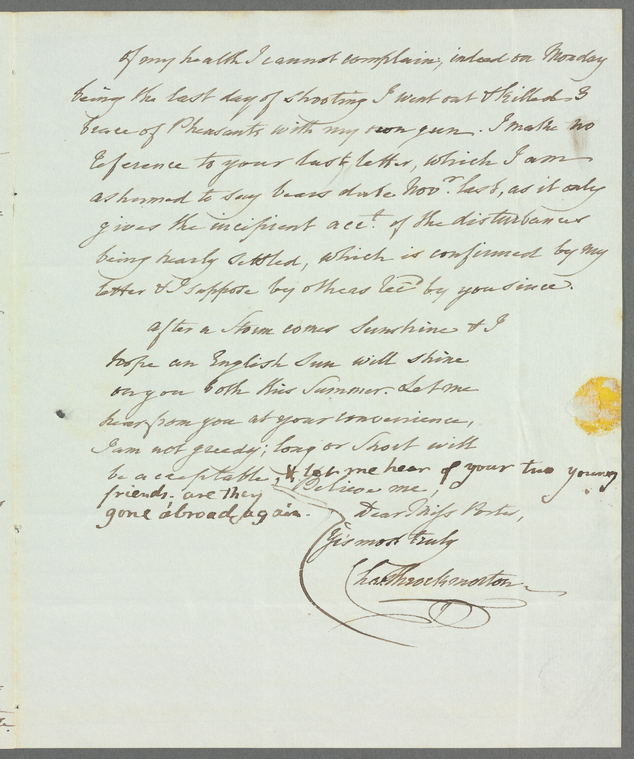 Of my health I cannot complain, indeed on Monday
being the last day of shooting I went out & killed 3
brace of Pheasants with my own gun. I make no
reference to your last letter, which I am
ashamed to say bears date Novr. last, as it only
gives the incipient acct. of the disturbances
being nearly settled, which is confirmed by my
letter & I suppose by others recd by you since.
After a Storm comes Sunshine & I
hope an English Sun will shine
on you both this Summer. Let me
hear from you at your convenience,
I am not greedy; long or short will
be acceptable, & let me hear of your two young
friends. are they
gone abroad again.
Believe me,
Dear Miss Porter,
Yrs most truly
Chas Throckmorton